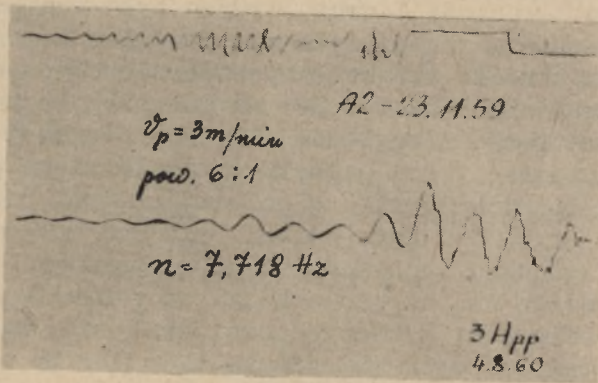 A2 - 23.11.59
vp = 3m/min
pow. 6:1
n = 7,718 Hz
3 Hpp
4.8.60